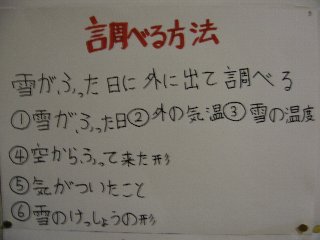 調べる方法
雪が、ふった日に外に出て調べる
①雪が、ふった日②外の気温③雪の温度
④空からふって来た形
⑤気がついたこと
⑥雪のけっしょうの形